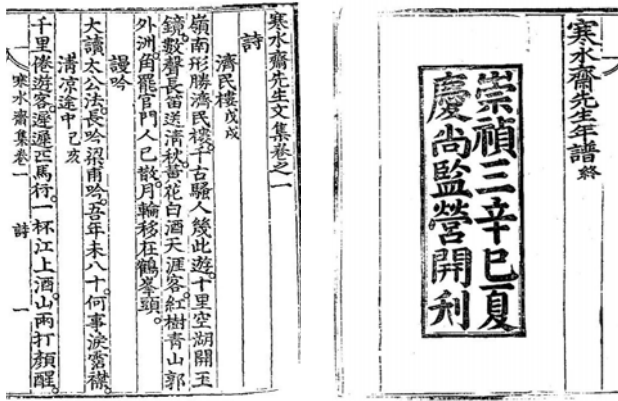 寒水齋先生年譜終
崇禎三辛巳夏
慶尙監營開刊
寒水齋先生文集卷之一
詩
濟民樓戊戌
嶺南形勝濟民樓。千古騷人幾此遊。十里空湖開玉
鏡。數聲長笛送淸秋。黃花白酒天涯客。紅樹靑山郭
外洲。角罷官門人已散。月輪移在鶴峯頭。
謾吟
大讀太公法。長吟梁甫吟。吾年未八十。何事淚霑襟。
淸凉途中己亥
千里倦遊客。遲遲匹馬行。一杯江上酒。山雨打顔醒。
寒水齋集卷一 詩 一